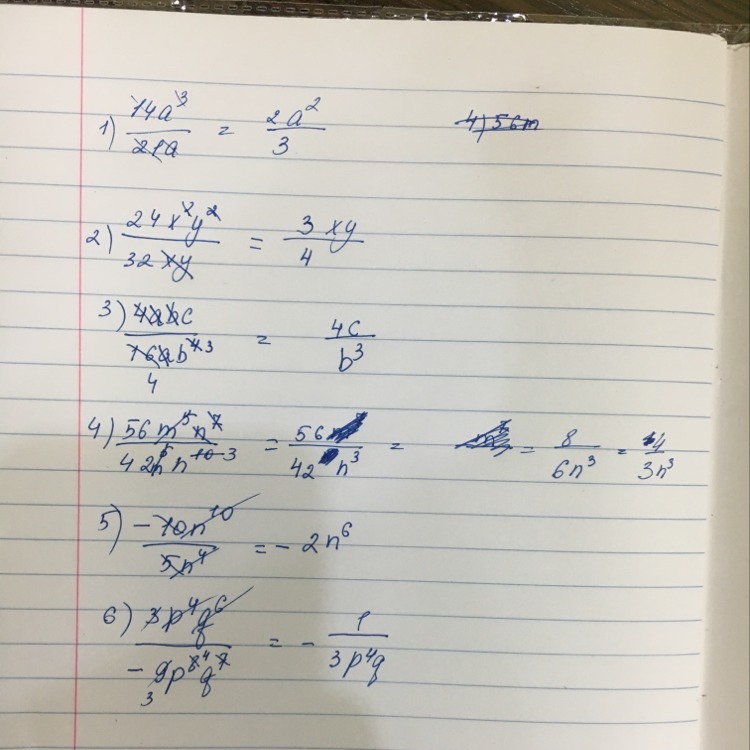 1) 14a³/21a = 2a²/3
4) 56m
2) 24x²y²/32xy = 3xy/4
3) 4abc/16ab⁴ ³ 4 = 4c/b³
4) 56m⁵n⁷/42m⁵n¹⁰ ³ = 56/42n³ = = 8/6n³ = 4/3n³
5) -10n¹⁰/5n⁴ = -2n⁶
6) 3p⁴q⁶/-9p⁸ ⁴q⁷ 3 = -1/3p⁴q